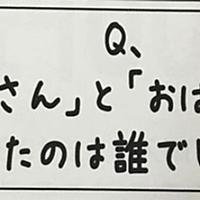 Q、
さん」と「おは
たのは誰でし